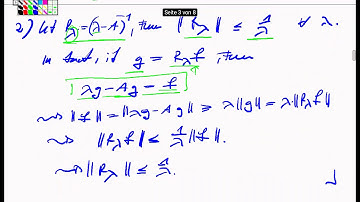 Seite 3 von 8
2) Let R_λ = (λ-A)^{-1}, then ‖R_λ‖ ≤ 1/λ ∀ λ.
In fact, if g = R_λ f, then
λg - Ag = f
⇝ ‖f‖ = ‖λg - Ag‖ ≥ λ‖g‖ = λ·‖R_λ f‖
⇝ ‖R_λ f‖ ≤ 1/λ ‖f‖.
⇝ ‖R_λ‖ ≤ 1/λ.